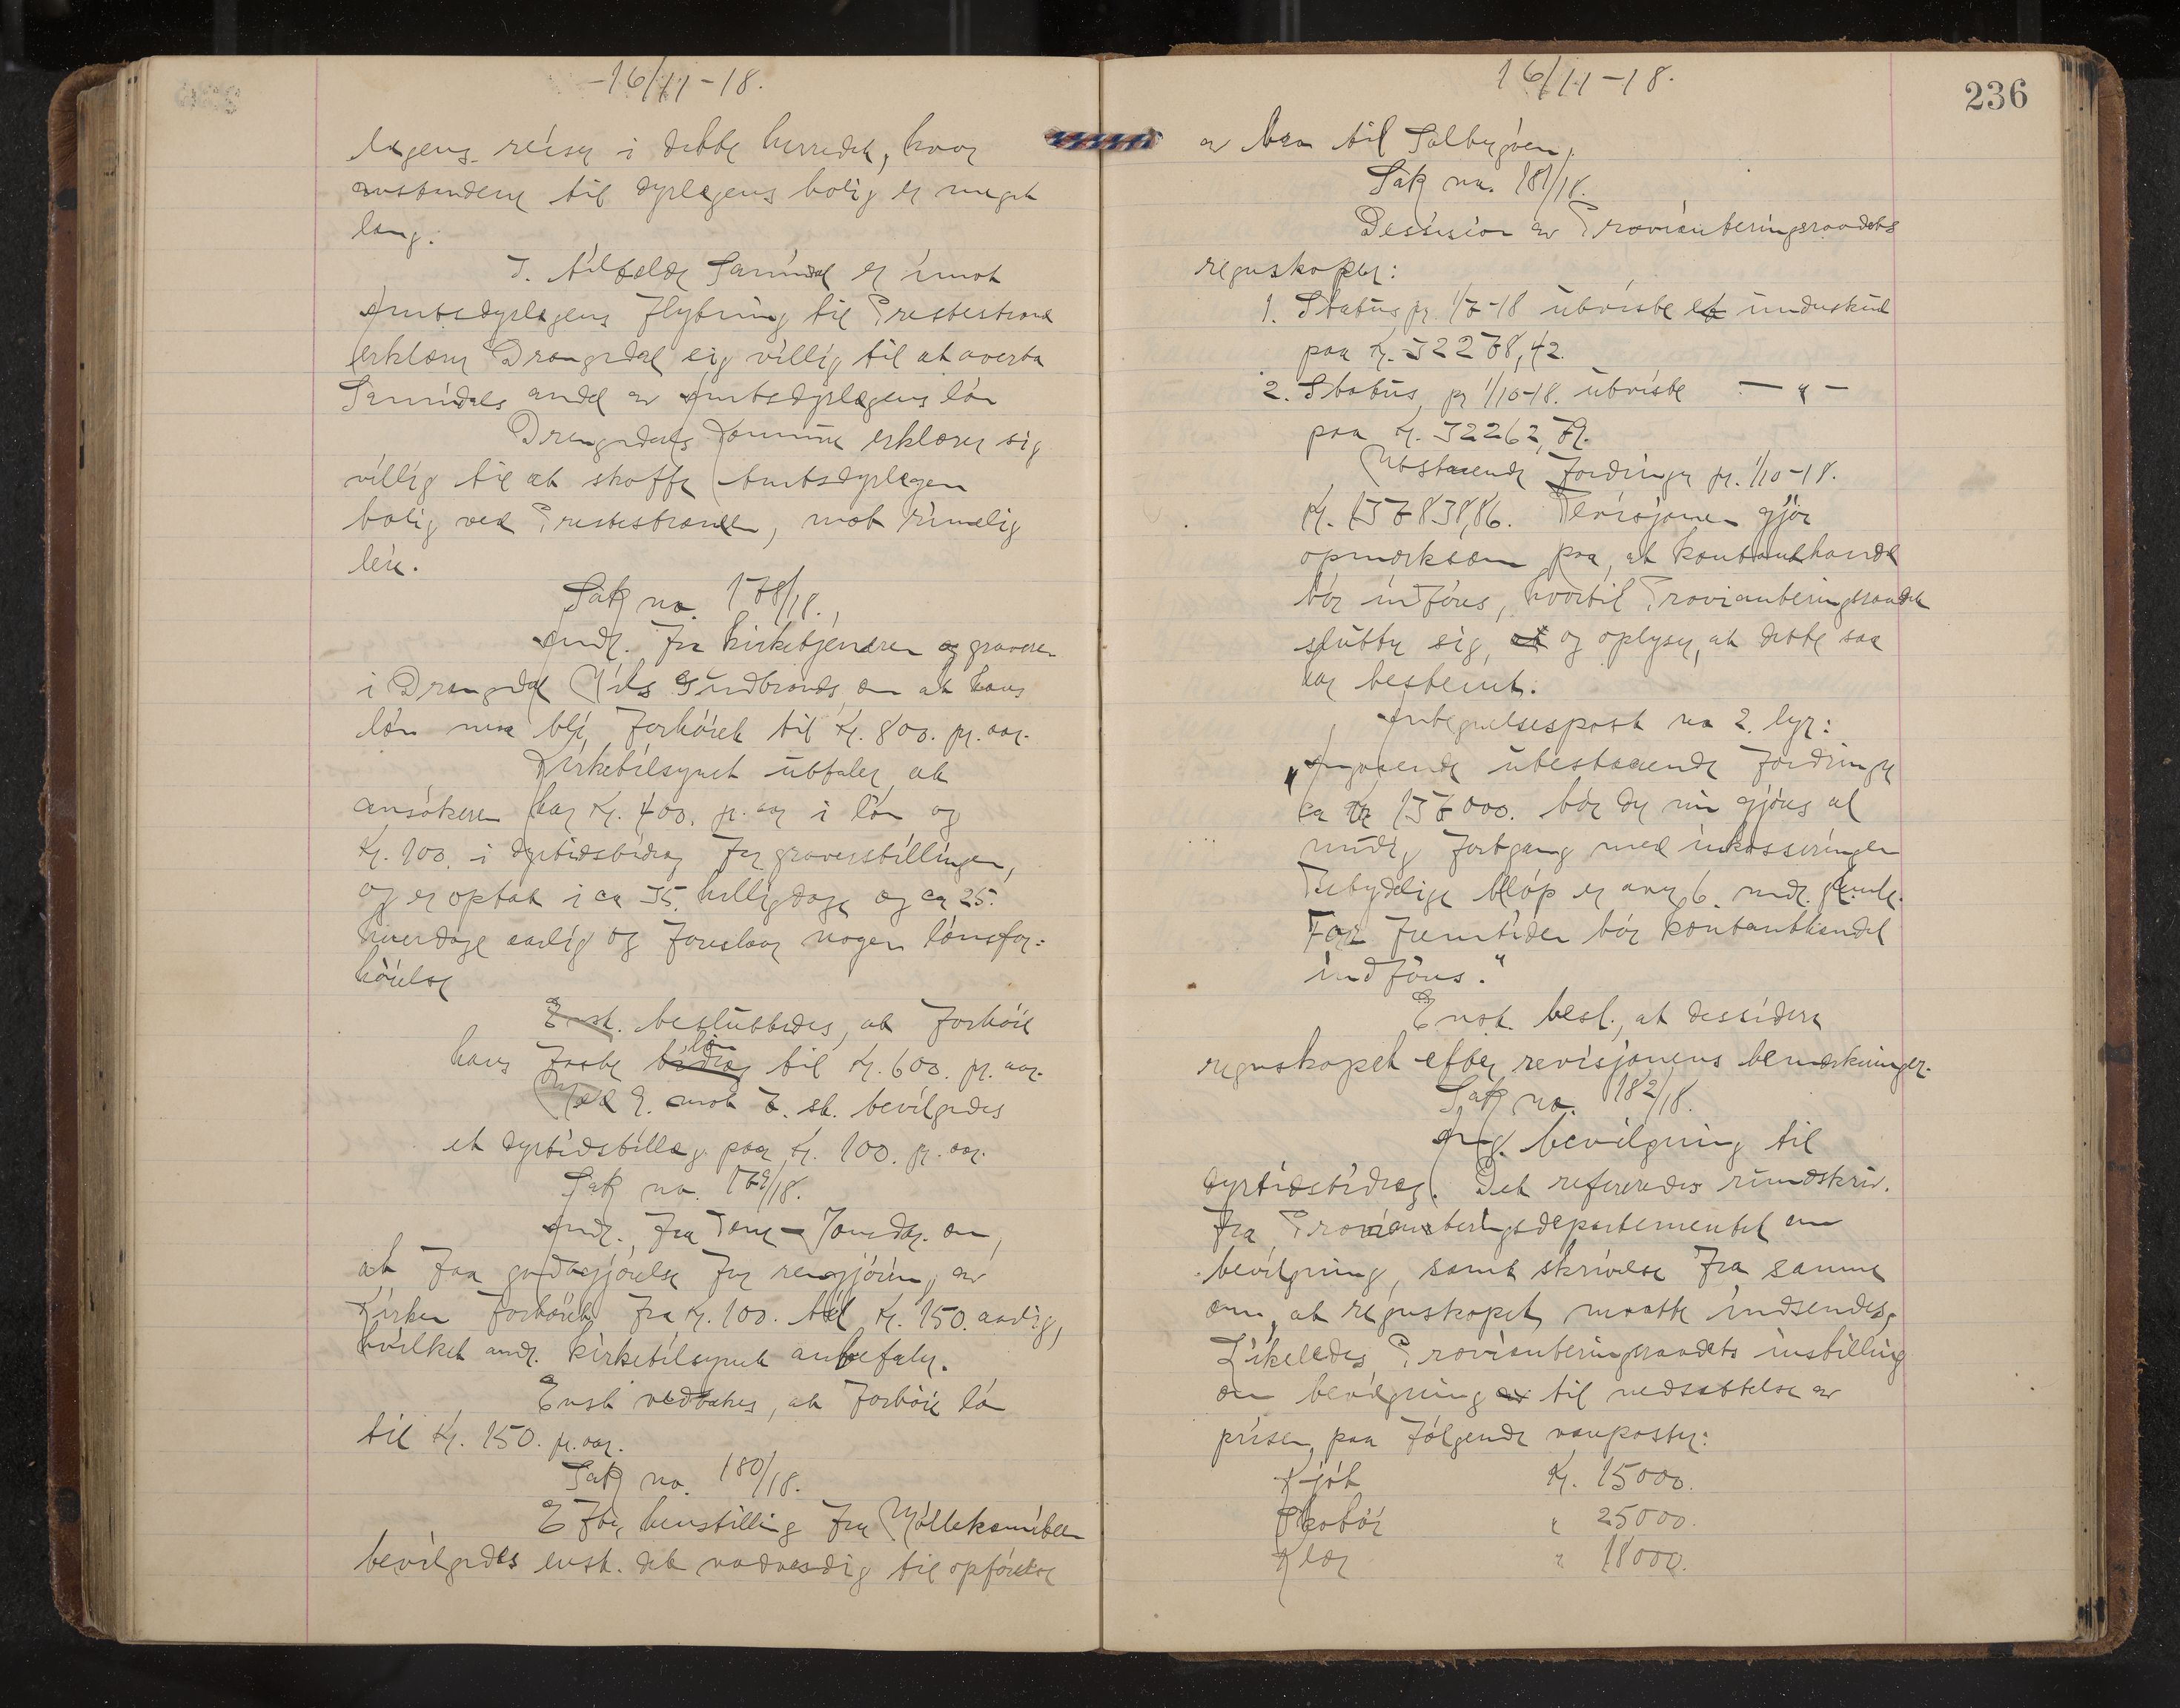 -16/11-18.
lægens reiser i dette herredet, hvor
avstandene til dyrlægens bolig er meget
lang.
I tilfælde Sannidal er imot
Amtsdyrlægens flytning til Prestestrand
erklærer Drangedal sig villig til at overta
Sannidals andel av Amtsdyrlægens løn
Drangedals komune erklærer sig
villig til at skaffe Amtsdyrlægen
bolig ved Prestestranden, mot rimelig
leie.
Sak no. 178/18.
Andr. fra kirketjeneren og graveren
i Drangedal Nils Gudbrands om at hans
løn maa bli forhöiet til Kr. 800. pr. aar.
Kirketilsynet uttaler at
ansökeren har Kr. 400. pr. aar i løn og
Kr. 100. i dyrtidsbidrag for graverstillingen,
og er optat i ca 35. helligdage og ca 25.
hverdage aarlig og foreslaar nogen lönsfor-
höielse
Enst. besluttedes, at forhöie
hans faste bidrag løn til Kr. 600. pr. aar.
Med 9. mot 7. st. bevilgedes
et dyrtidstillæg paa Kr. 100. pr. aar.
Sak no. 179/18.
Andr. fra Tone Jonsdr. om,
at faa godtgjörelse for rengjöring av
Kirken forhöiet fra Kr. 100. til Kr. 150. aarlig,
hvilket andr. kirketilsynet anbefaler.
Enst vedtokes, at forhöie løn
til Kr. 150. pr. aar.
Sak no. 180/18.
Efter henstilling fra Møllekomiteen
bevilgedes enst. det nødvendig til opförelse
16/11-18.
236
av bro til Solbergöen.
Sak no. 181/18.
Dessision av Provianteringsraadets
regnskaper:
1. Status pr 1/7-18 utviste et underskud
paa Kr. 32278,42.
2. Status pr 1/10-18. utviste — " —
paa Kr. 32262,79.
Utstaaende fordringer pr. 1/10-18.
Kr. 137838,86. Revisjonen gjör
opmerksom paa, at kontanthandel
bör indföres, hvortil Provianteringsraadet
slutter sig, at og oplyser, at dette saa
var bestemt.
Antegnelsespost no 2. lyr:
"Angaaende utestaaende fordringer
ca Kr 137000. bör der nu gjöres al
mulig fortgang med inkasseringen
Betydelige beløp er over 6. mdr. gamle.
For fremtiden bör kontanthandel
indföres."
Enst. besl., at dessidere
regnskapet efter revisjonens bemerkninger.
Sak no. 182/18.
Ang. bevilgning til
dyrtidsbidrag. Det refereredes rundskriv.
fra Provianteringsdepartementet om
bevilgning, samt skrivelse fra samme
om, at regnskapet maatte indsendes,
Likeledes Provianteringsraadets instilling
om bevilgning av til nedsættelse av
prisen paa fölgende vareposter:
Kjöt Kr. 15000.
Skotöi " 25000.
Klær " 18000.